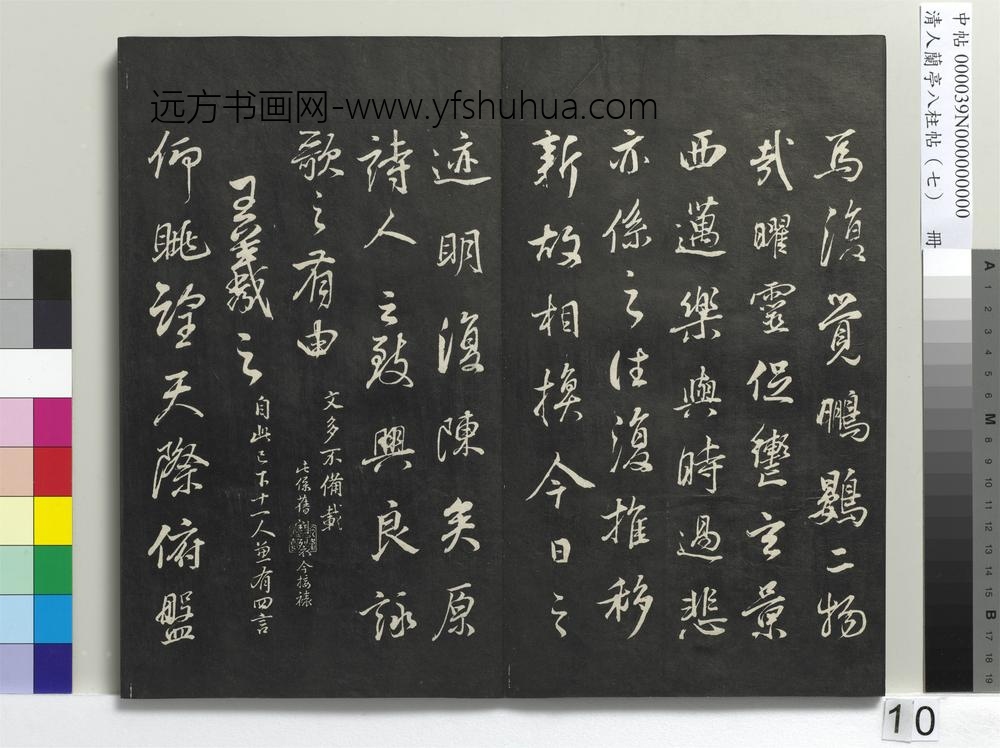 焉復覺鵬鷃之二物
哉曜靈促轡玄景
西邁樂與時過悲
亦係之往復推移
新故相換今日之
迹明復陳矣原
詩人之致興良詠
歌之有由
文多不備載
此係舊
今接裱
王羲之
自此已下十一人並有四言
仰眺望天際俯盤
远方书画网-www.yfshuhua.com
中帖 000039N000000000
清人蘭亭八柱帖（七） 冊
A 1 2 3 4 5 6 M 8 9 10 11 12 13 14 15 B 17 18 19
10